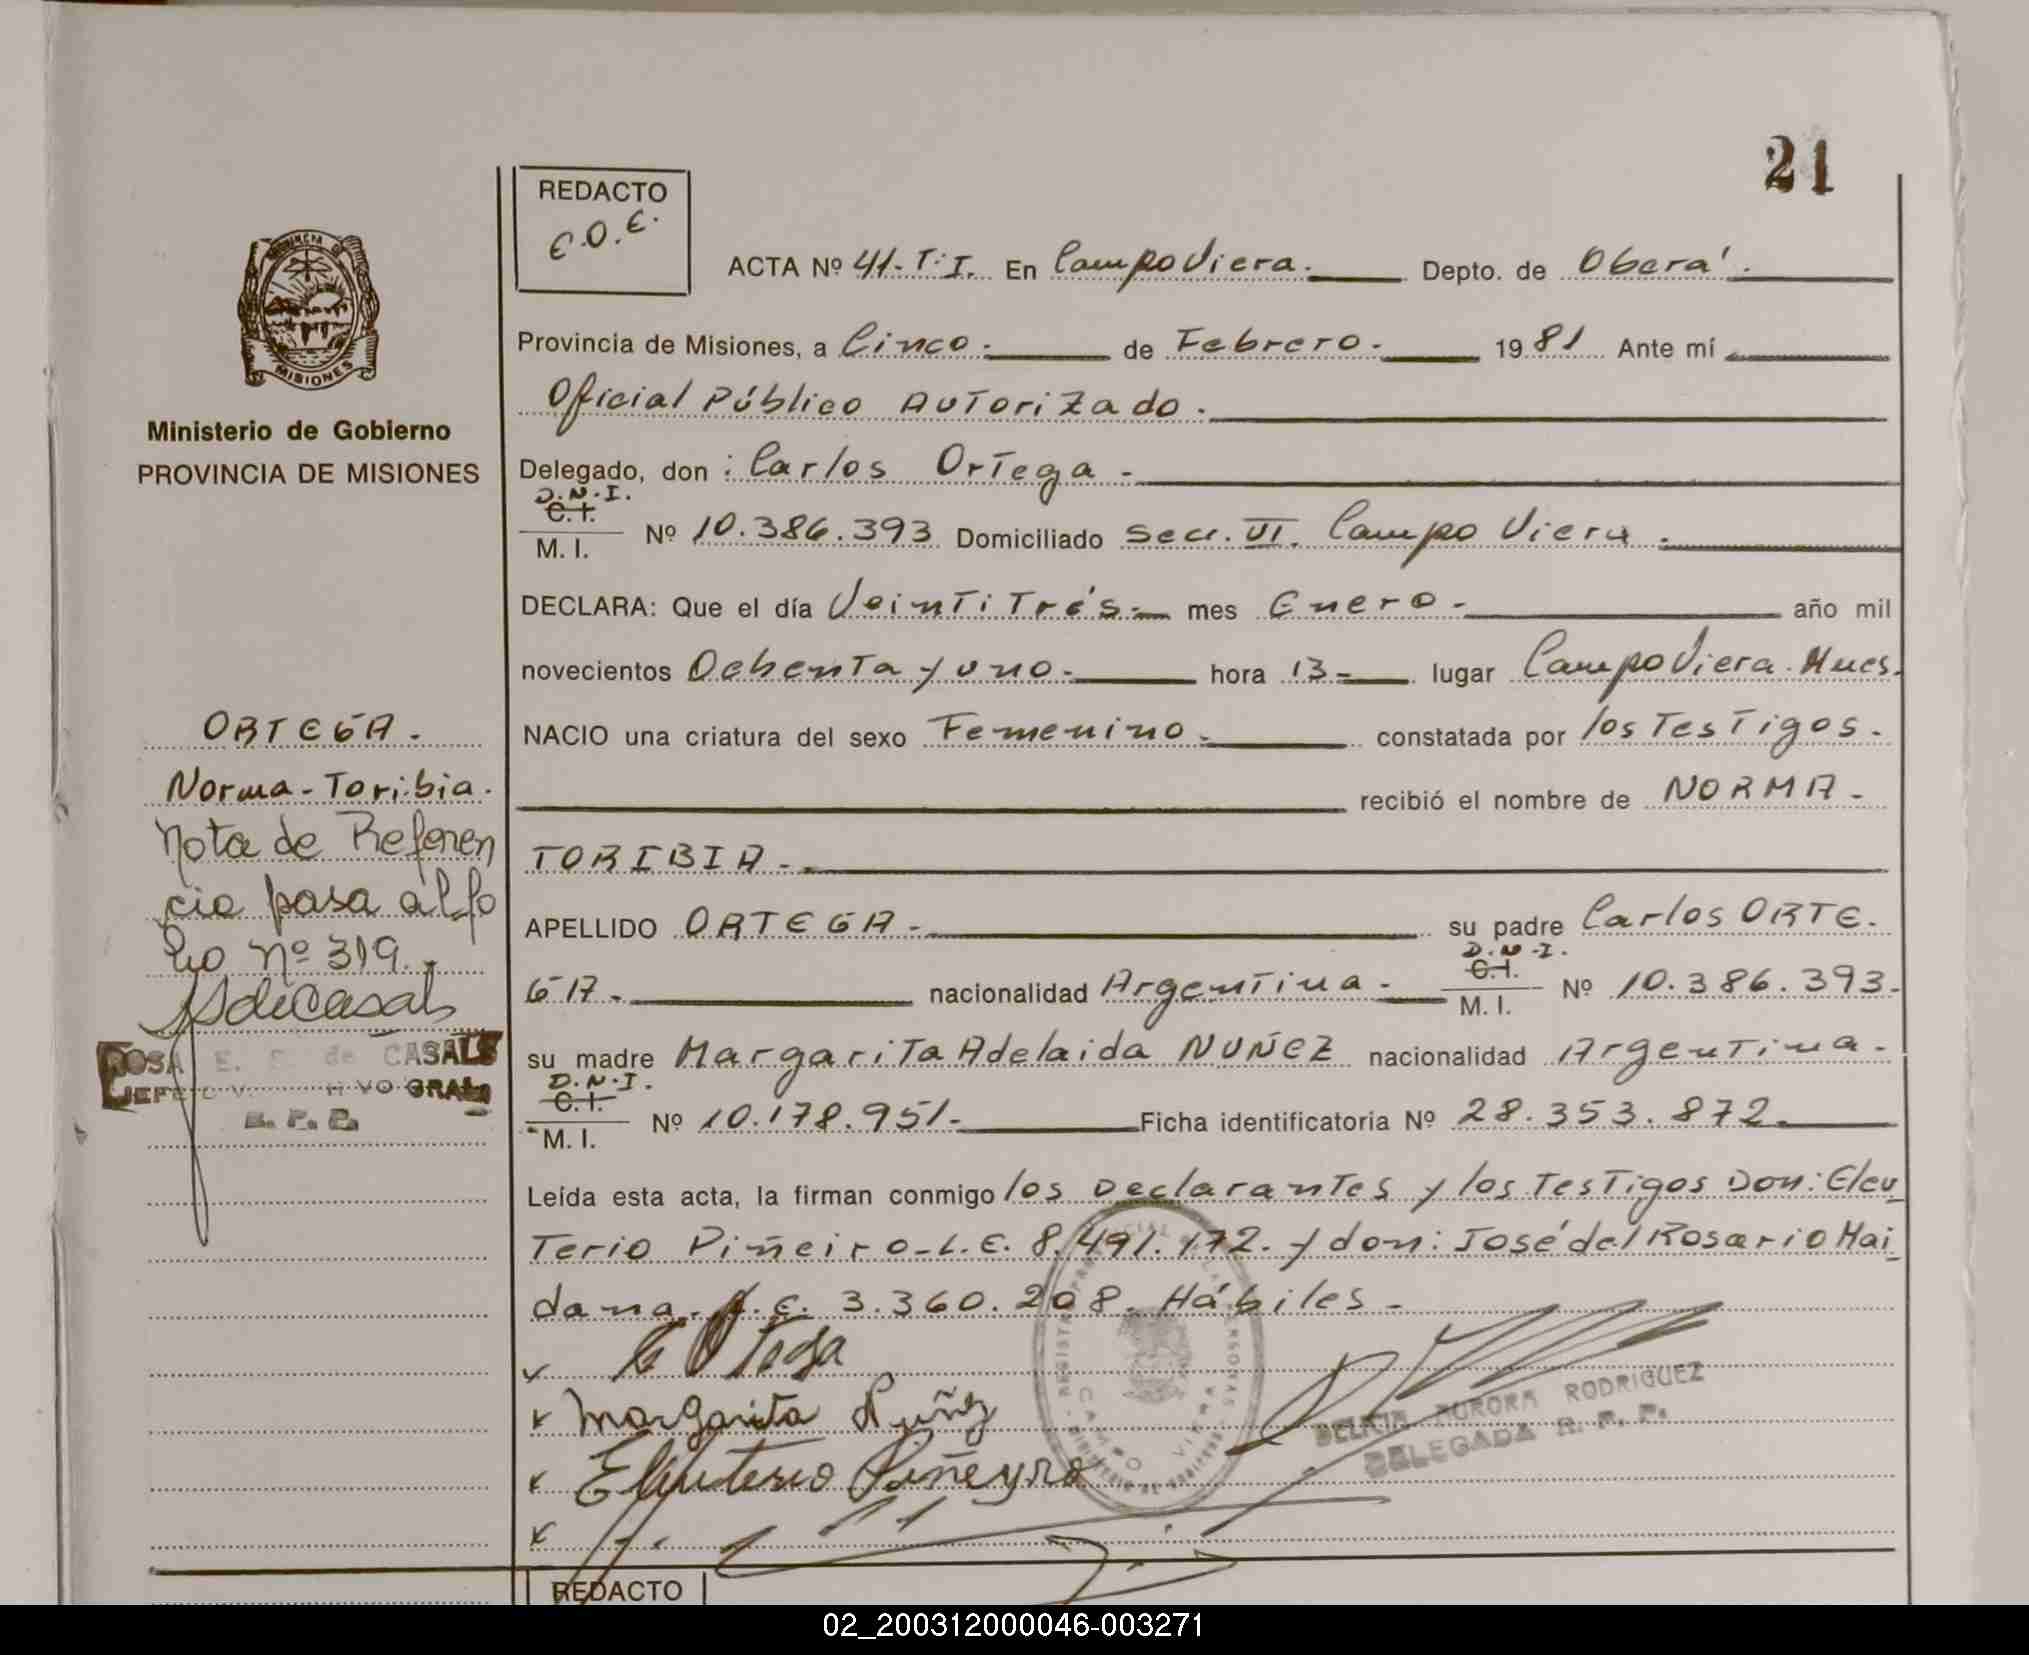 21
REDACTO
E.O.E.
ACTA Nº 41-T.I. En Campo Viera. Depto. de Oberá.
Provincia de Misiones, a Cinco. de Febrero. 1981 Ante mí
Oficial Público Autorizado.
Delegado, don : Carlos Ortega -
D.N.I.
C.I.
M. I. Nº 10.386.393 Domiciliado Secc. VI. Campo Viera.
DECLARA: Que el día Veintitrés.- mes Enero - año mil
novecientos Ochenta y uno. hora 13- lugar Campo Viera. Mnes.
NACIO una criatura del sexo Femenino. constatada por los Testigos.
recibió el nombre de NORMA -
TORIBIA -.
APELLIDO ORTEGA - su padre Carlos ORTE.
GA. nacionalidad Argentina - D.N.I. C.I. M. I. Nº 10.386.393-
su madre Margarita Adelaida NUÑEZ nacionalidad Argentina -
D.N.I.
C.I.
M. I. Nº 10.178.951. Ficha identificatoria Nº 28.353.872.
Leída esta acta, la firman conmigo los Declarantes y los Testigos Don: Eleu
Terio Piñeiro - L.E. 8.491.172. y don: José del Rosario Mai
dana. L.E. 3.360.208. Hábiles -
Margarita Nuñez
Eleuterio Piñeyro
DELICIA AURORA RODRIGUEZ
DELEGADA R. P. P.
CAMPO VIERA
REDACTO
MISIONES
Ministerio de Gobierno
PROVINCIA DE MISIONES
ORTEGA.
Norma - Toribia.
Nota de Referen
cia pasa al fo
lio nº 319.
ROSA E. de CASALS
R. P. P.
02_200312000046-003271